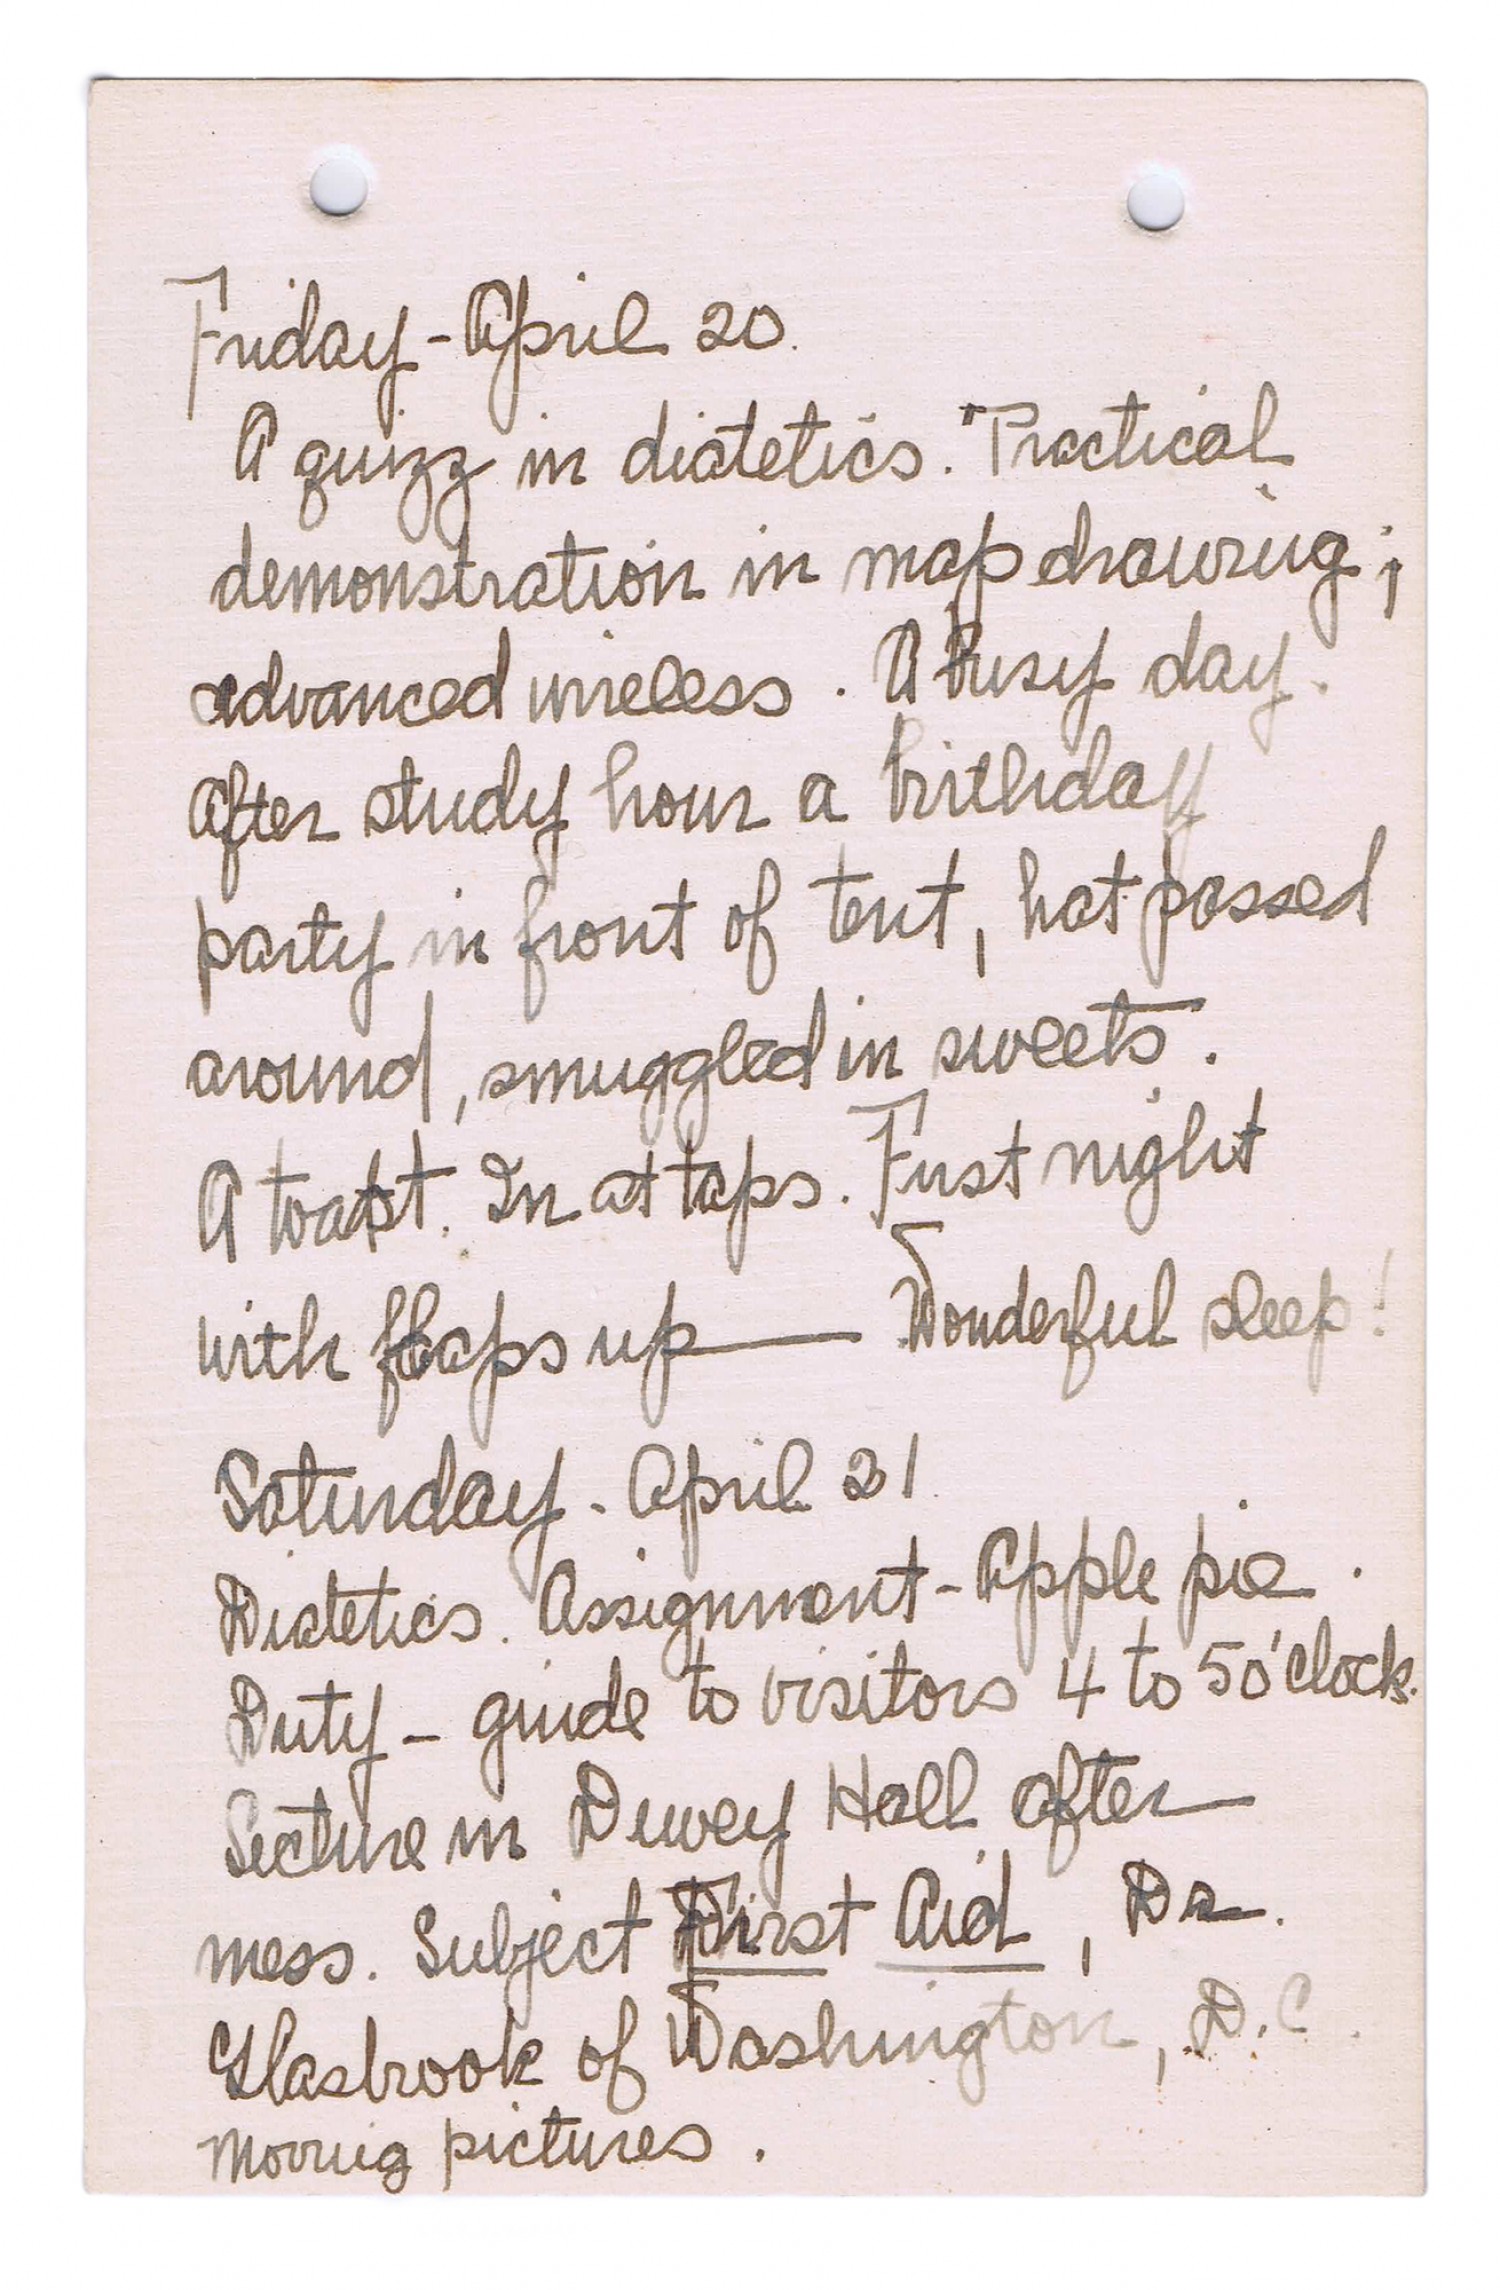 Friday - April 20.
A quizz in diatetics. Practical
demonstration in map drawing;
advanced wireless. A busy day.
After study hour a birthday
party in front of tent, hat passed
around, smuggled in sweets.
A toast. In at taps. First night
with flaps up — Wonderful sleep!
Saturday - April 21
Diatetics. Assignment - Apple pie.
Duty - guide to visitors 4 to 5 o'clock.
Lecture in Dewey Hall after
mess. Subject First Aid, Dr.
Glasbrook of Washington, D.C.
Moving pictures.